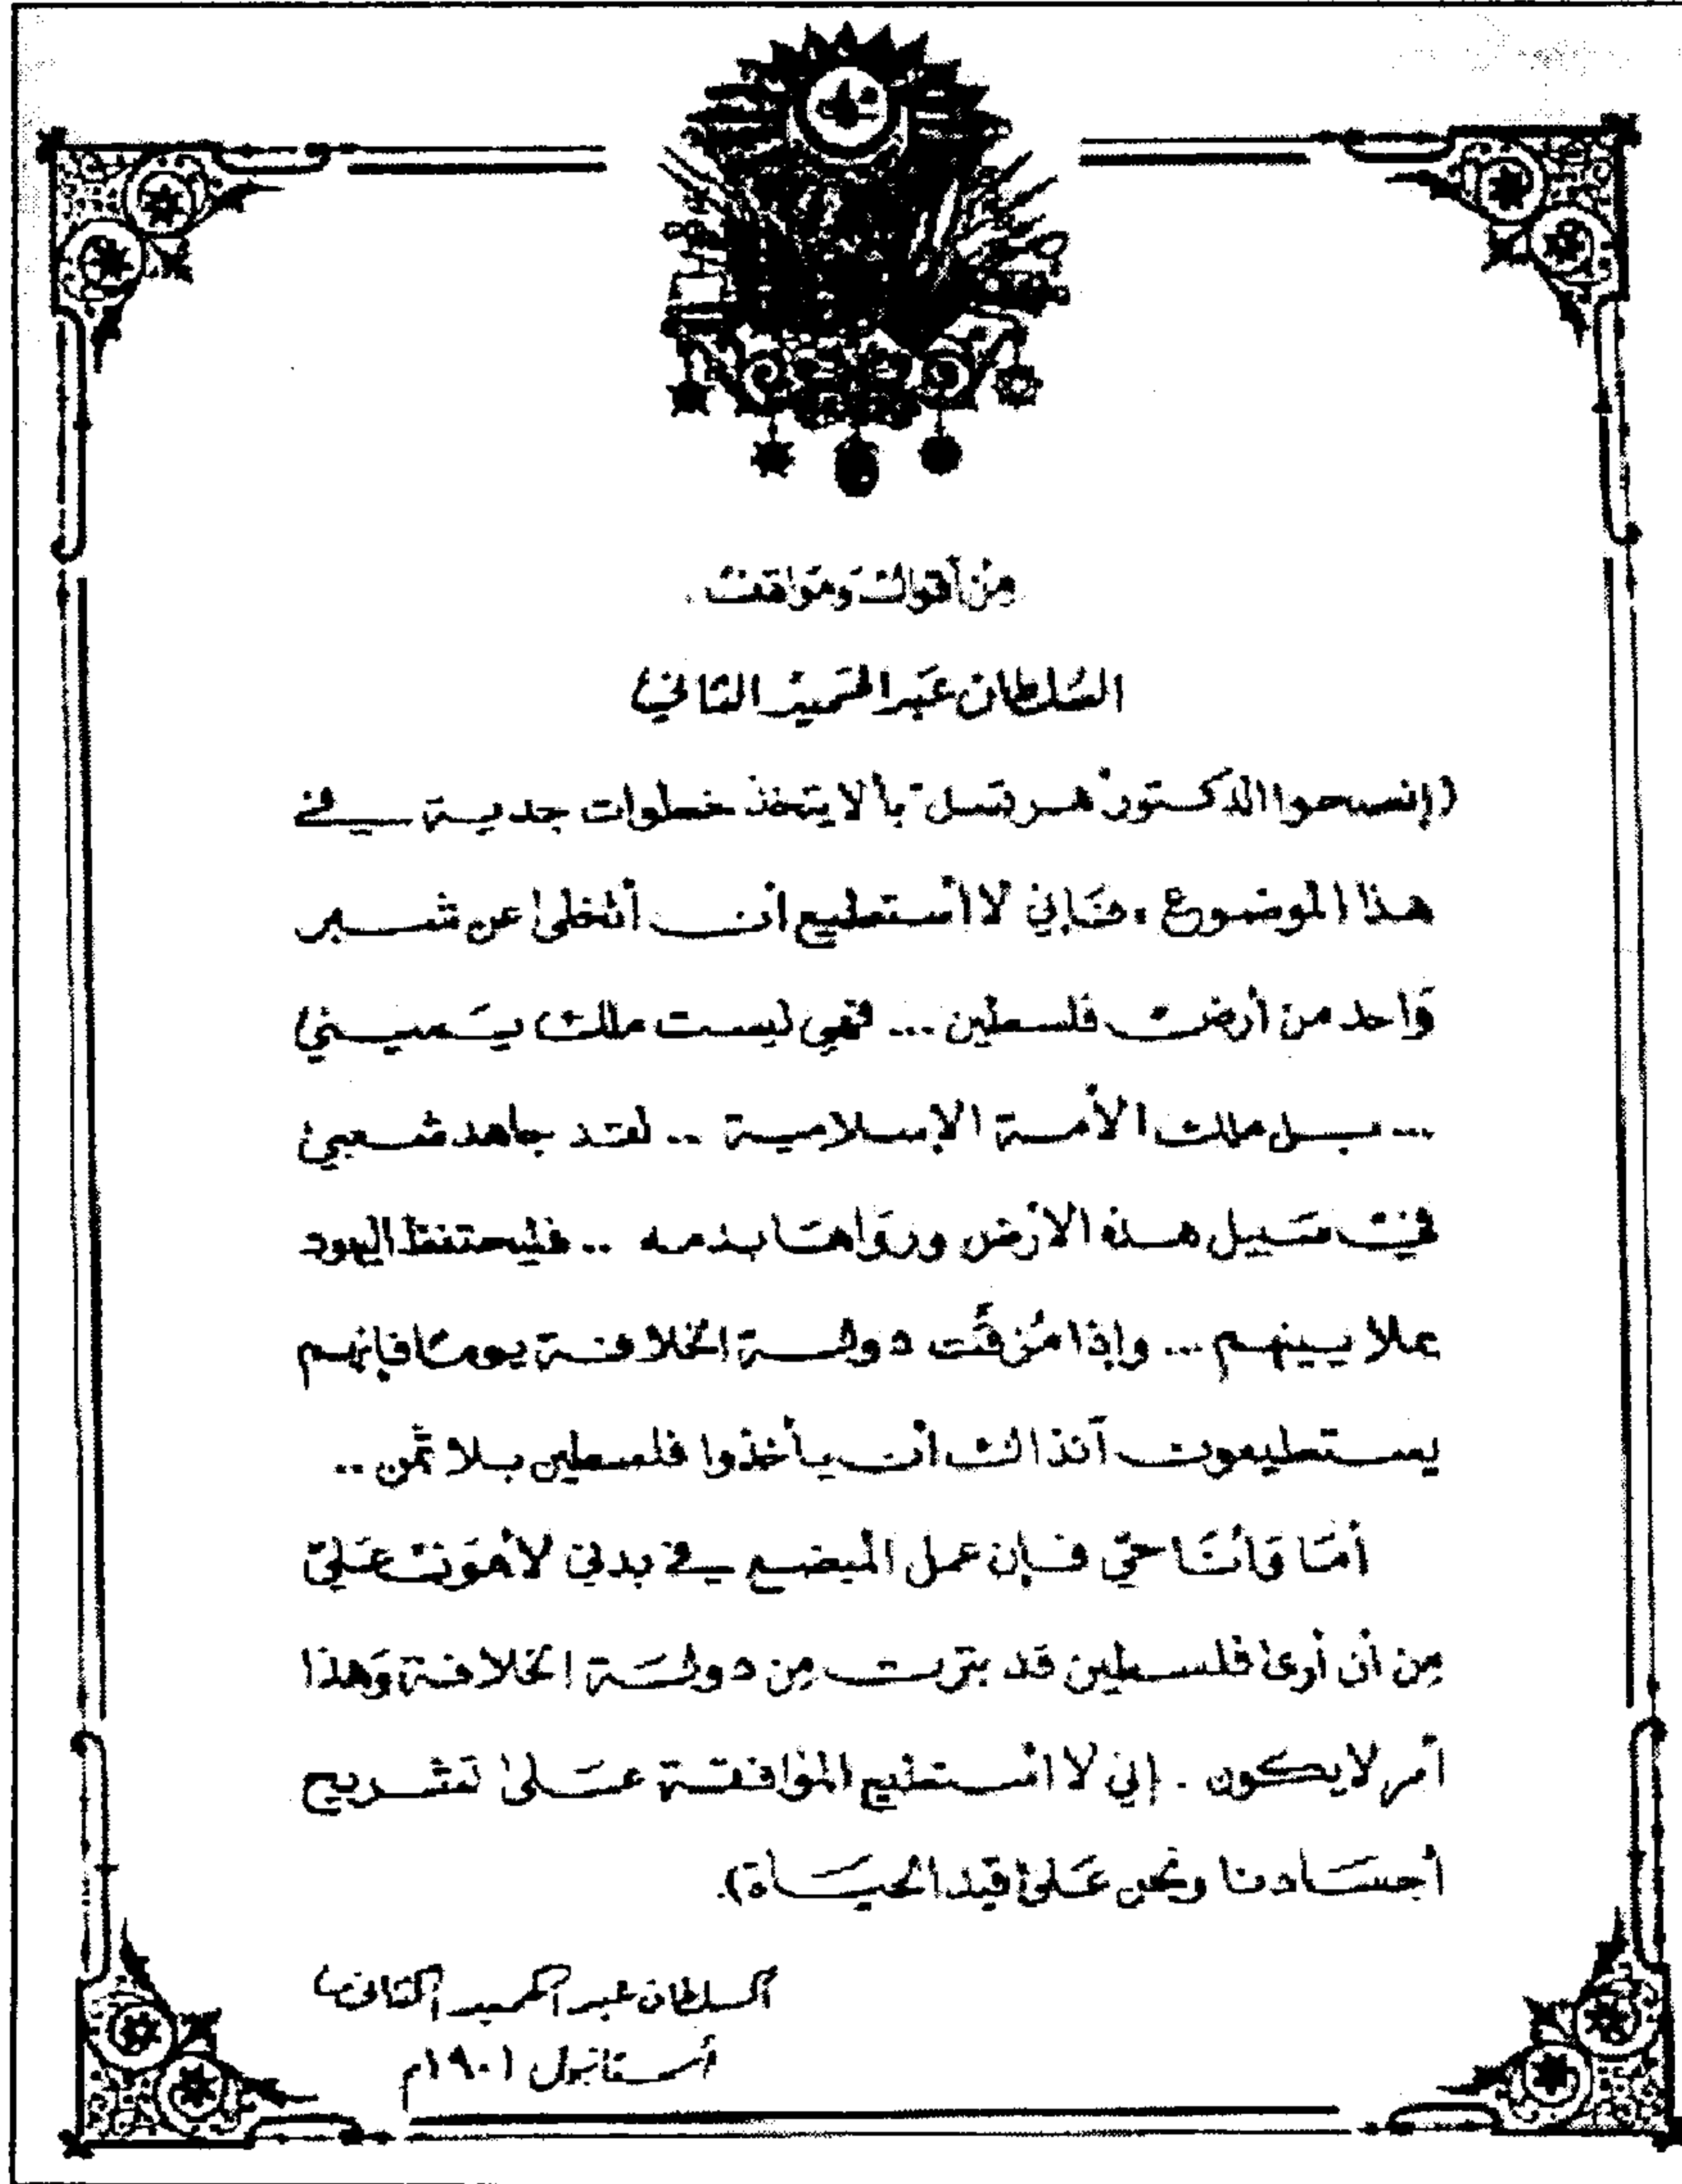 من أقوال ومواقف
السلطان عبد الحميد الثاني
(إنصحوا الدكتور "هرتسل" بألا يتخذ خطوات جدية في
هذا الموضوع، فإني لا أستطيع أن أتخلى عن شبر
واحد من أرض فلسطين ... فهي ليست ملك يميني
... بل ملك الأمة الإسلامية .. لقد جاهد شعبي
في سبيل هذه الأرض ورواها بدمه .. فليحتفظ اليهود
بملايينهم ... وإذا مُزقت دولة الخلافة يومًا فإنهم
يستطيعون آنذاك أن يأخذوا فلسطين بلا ثمن ..
أما وأنا حي فإن عمل المبضع في بدني لأهون عليّ
من أن أرى فلسطين قد بترت من دولة الخلافة وهذا
أمر لا يكون . إني لا أستطيع الموافقة على تشريح
أجسادنا ونحن على قيد الحياة).
السلطان عبد الحميد الثاني
أستانبول ١٩٠١م